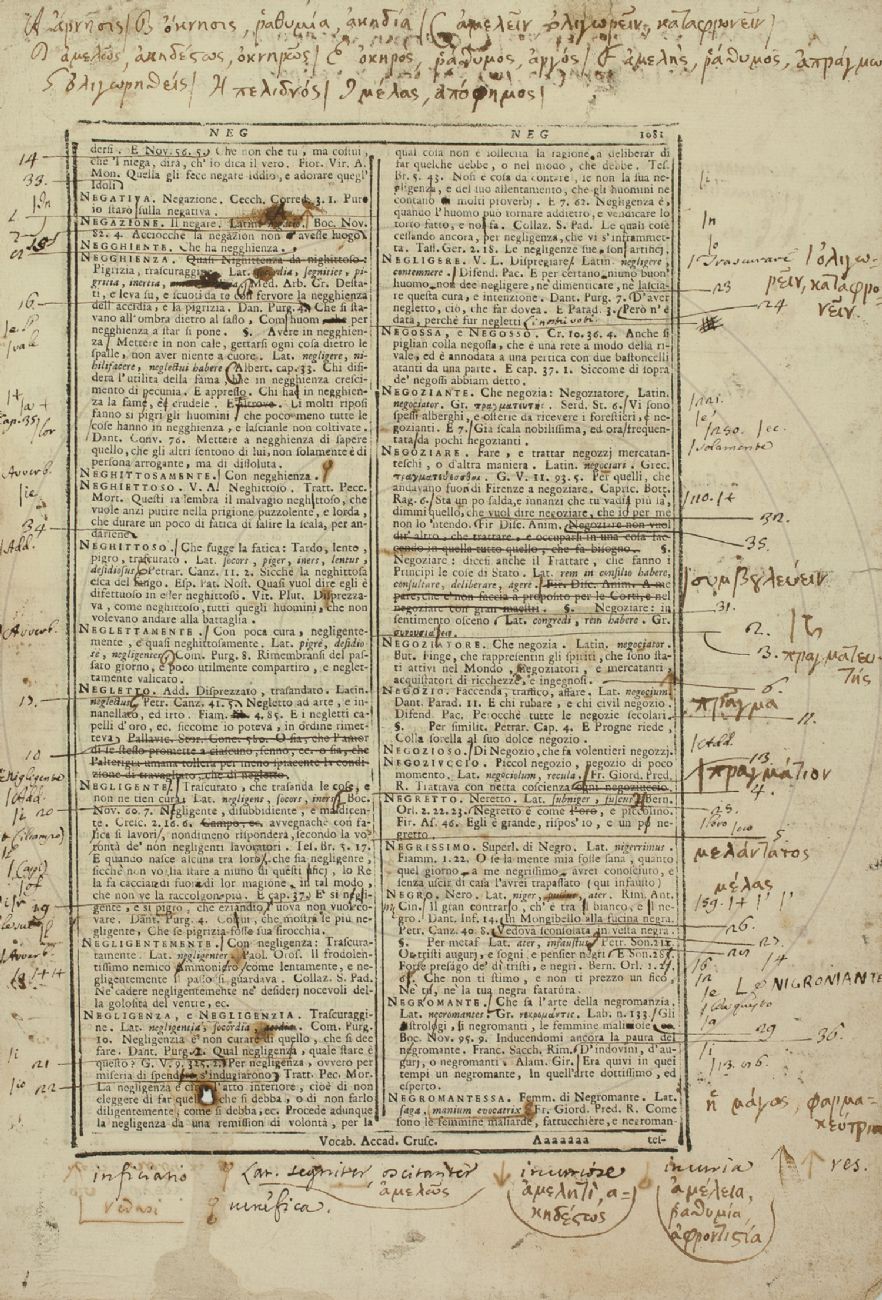 Α ἄρνησις / Β ὄκνησις, ῥαθυμία, ἀκηδία / C ἀμελεῖν ὀλιγωρεῖν, καταφρονεῖν /
D ἀμελῶς, ἀκηδέστως, ὀκνηρῶς / E ὀκνηρος, ῥάθυμος, ἀργός / F ἀμελής, ῥάθυμος,
G ὀλιγωρηθείς / H πελιδνός / I μέλας, ἀπόφημος /
NEG
NEG 1081
dersi. E Nov. 56. 5. Che non che tu, ma costui,
che 'l niega, dirà, ch' io dica il vero. Fior. Vir. A.
Mon. Quella gli fece negare iddio, e adorare quegl'
Idoli
NEGATIVA. Negazione. Cecch. Corred. 3. 1. Pure
io starò sulla negativa.
NEGAZIONE. Il negare. Latin. Boc. Nov.
82. 4. Acciocchè la negazion non avesse luogo.
NEGGHIENTE. Che ha negghienza.
NEGGHIENZA. Quasi Nighittenza da nighittoso:
Pigrizia, trascuraggine. Lat. segnities, pi-
gritia, inertia, Med. Arb. Cr. Desta-
ti, e leva su, e scuoti da te con fervore la negghienza
dell'accidia, e la pigrizia. Dan. Purg. 4. Che si sta-
vano all'ombra dietro al sasso, Com'huom per
negghienza a star si pone. §. Avere in negghien-
za, Mettere in non cale, gettarsi ogni cosa dietro le
spalle, non aver niente a cuore. Lat. negligere, ni-
hilifacere, neglectui habere. Albert. cap. 33. Chi disi-
dera l'utilità della fama, Che in negghienza cresci-
mento di pecunia. E appresso. Chi ha in negghien-
za la fame, è crudele. E altrove. Li molti riposi
fanno si pigri gli huomini, che poco meno tutte le
cose hanno in negghienza, e lascianle non coltivate.
Dant. Conv. 76. Mettere a negghienza di sapere
quello, che gli altri sentono di lui, non solamente è di
persona arrogante, ma di dissoluta.
NEGHITTOSAMENTE. Con negghienza.
NEGHIETTOSO. V. A. Neghittoso. Tratt. Pecc.
Mort. Questi rasembra il malvagio neghittoso, che
vuole anzi putire nella prigione puzzolente, e lorda,
che durare un poco di fatica di salire la scala, per an-
dàriene.
NEGHITTOSO. Che fugge la fatica: Tardo, lento,
pigro, trascurato. Lat. socors, piger, iners, lentus,
desidiosus. Petrar. Canz. 11. 2. Sicchè la neghittosa
esca del fango. Esp. Pat. Nost. Quasi vuol dire egli è
difettuoso in esser neghittoso. Vit. Plut. Disprezza-
va, come neghittoso, tutti quegli huomini, che non
volevano andare alla battaglia.
NEGLETTAMENTE. Con poca cura, negligente-
mente, e quasi neghittosamente. Lat. pigrè, desidio
sè, negligenter. Com. Purg. 8. Rimembransi del pas-
sato giorno, e poco utilmente compartiro, e neglet-
tamente valicato.
NEGLETTO. Add. Disprezzato, trasandato. Latin.
neglectus. Petr. Canz. 41. 5. Negletto ad arte, e in-
nanellato, ed irto. Fiam. 4. 85. E i negletti ca-
pelli d'oro, ec. siccome io poteva, in ordine rimet-
teva. Pallavic. Stor. Conc. 580. O sia, che l'amor
di se stesso promette a ciascuno, senno, ec. o sia, che
l'alterigia umana tollera per meno spiacente la condi-
zione di travagliato, che di negletto.
NEGLIGENTE. Trascurato, che trasanda le cose, e
non ne tien cura. Lat. negligens, socors, iners. Boc.
Nov. 60. 7. Negligente, disubbidiente, e maldicen-
te. Cresc. 2. 18. 6. Campo, ec. avvegnachè con fa-
tica si lavori, nondimeno risponderà, secondo la vo-
lontà de' non negligenti lavoratori. Tes. Br. 5. 17.
E quando nasce alcuna tra loro, che sia negligente,
sicchè non voglia stare a niuno di questi uficj, lo Re
la fa cacciar di fuor di lor magione, in tal modo,
che non ve la raccolgon più. E cap. 37. E' si negli-
gente, e sì pigro, che eziandio l'uova non vuol co-
vare. Dant. Purg. 4. Colui, che mostra se più ne-
gligente, Che se pigrizia fosse sua sirocchia.
NEGLIGENTEMENTE. Con negligenza: Trascura-
tamente. Lat. negligenter. Paol. Oros. Il frodolen-
tissimo nemico ammonigro come lentamente, e ne-
gligentemente il passo si guardava. Collaz. S. Pad.
Nè cadere negligentemente ne' desiderj nocevoli del-
la golosità del ventre, ec.
NEGLIGENZA, e NEGLIGENZIA. Trascuraggi-
ne. Lat. negligentia, socordia, Com. Purg.
10. Negligenza è non curare di quello, che si dee
fare. Dant. Purg. 2. Qual negligenza, quale stare è
questo? G. V. 9. 325. 2. Per negligenza, ovvero per
miseria di spendere s'indugiarono. Tratt. Pec. Mor.
La negligenza è cioè l'atto interiore, cioè di non
eleggere di far quel che si debba, o di non farlo
diligentemente, come si debba, ec. Procede adunque
la negligenza da una remission di volontà, per la
qual cosa non è sollecita la ragione a deliberar di
far quelche debbe, o nel modo, che debbe. Tes.
Br. 5. 43. Non è cosa da contare, se non la sua ne-
gligenza, e del suo allentamento, che gli huomini ne
contano molti proverbj. E 7. 62. Negligenza è,
quando l'huomo può tornare addietro, e vendicare lo
torto fatto, e nol fa. Collaz. S. Pad. Le quali cose
cessando ancora, per negligenza, che vi s'intrammet-
ta. Tass. Ger. 2. 18. Le negligenze sue, son'artificj.
NEGLIGERE. V. L. Dispregiare. Latin. negligere,
contemnere. Difend. Pac. E per certano niuno buon'
huomo, non dee negligere, nè dimenticare, nè lascia-
re questa cura, e intenzione. Dant. Purg. 7. D'aver
negletto, ciò, che far dovea. E Parad. 3. Però n'è
data, perchè fur negletti
NEGOSSA, e NEGOSSO. Cr. 10. 36. 4. Anche si
piglian colla negossa, che è una rete a modo della ri-
vale, ed è annodata a una pertica con due bastoncelli
atanti da una parte. E cap. 37. 1. Siccome di sopra
de' negossi abbiam detto.
NEGOZIANTE. Che negozia: Negoziatore, Latin.
negociator. Gr. πραγματευτής. Serd. St. 6. Vi sono
spessi alberghi, e osterie da ricevere i forestieri, e ne-
gozianti. E 7. Già scala nobilissima, ed ora frequen-
tata da pochi negozianti.
NEGOZIARE. Fare, e trattar negozzj mercatan-
teschi, o d'altra maniera. Latin. negociari. Grec.
πραγματεύεσθαι. G. V. 11. 93. 5. Per quelli, che
andavano fuori di Firenze a negoziare. Capric. Bott.
Rag. 6. Sta un po salda, e innanzi che tu vadia più là,
dimmi quello, che vuol dire negoziare, che io per me
non lo 'ntendo. Fir. Disc. Anim. Negoziare non vuol
dir'altro, che trattare, e occuparsi in una cosa fac-
cendo in quella tutto quello, che fa bisogno. §.
Negoziare: dicesi anche il Trattare, che fanno i
Principi le cose di Stato. Lat. rem in consilio habere,
consultare, deliberare, agere. Fir. Disc. Anim. A me
pare, che e' non faccia a proposito per le Corti, e nel
negoziare con gran maestri. §. Negoziare: in
sentimento osceno. Lat. congredi, rem habere. Gr.
συνουσιάζειν.
NEGOZIATORE. Che negozia. Latin. negociator.
But. Finge, che rappresentin gli spiriti, che sono sta-
ti attivi nel Mondo, Negoziatori, e mercatanti,
acquistatori di ricchezze, e ingegnosi.
NEGOZIO. Faccenda, traffico, affare. Lat. negocium.
Dant. Parad. 11. E chi rubare, e chi civil negozio.
Difend. Pac. Perocchè tutte le negozie secolari.
§. Per similit. Petrar. Cap. 4. E Progne riede,
Colla sorella al suo dolce negozio.
NEGOZIOSO. Di Negozio, che fa volentieri negozzj.
NEGOZIUCCIO. Piccol negozio, negozio di poco
momento. Lat. negociolum, recula. Fr. Giord. Pred.
R. Trattava con netta coscienza ogni negoziuccio.
NEGRETTO. Neretto. Lat. subniger, fuscus. Bern.
Orl. 2. 22. 23. Negretto è come l'oro, e piccolino.
Fir. As. 46. Egli è grande, rispos'io, e un po ne-
gretto.
NEGRISSIMO. Superl. di Negro. Lat. nigerrimus.
Fiamm. 1. 22. O se la mente mia fosse sana, quanto
quel giorno a me negrissimo avrei conosciuto, e
senza uscir di casa l'avrei trapassato (qui infausto)
NEGRO. Nero. Lat. niger, ater. Rim. Ant.
Cin. Il gran contrario, ch'è tra 'l bianco, e 'l ne-
gro. Dant. Inf. 14. In Mongibello alla fucina negra.
Petr. Canz. 40. 8. Vedova sconsolata in vesta negra.
§. Per metaf. Lat. ater, infaustus. Petr. Son. 211.
On tristi augurj, e sogni, e pensier negri. E Son. 287.
Forse presago de' dì tristi, e negri. Bern. Orl. 1. 27.
6. Che non ti stimo, e non ti prezzo un fico,
Nè te, nè la tua negra fatatura.
NEGROMANTE. Che fa l'arte della negromanzia.
Lat. necromantes. Gr. νεκρομάντις. Lab. n. 133. Gli
astrologi, i negromanti, le femmine maliose
Boc. Nov. 95. 9. Inducendomi ancora la paura del
negromante. Franc. Sacch. Rim. D'indovini, d'au-
gurj, o negromanti. Alam. Gir. Era quivi in quei
tempi un negromante, In quell'arte dottissimo, ed
esperto.
NEGROMANTESSA. Femm. di Negromante. Lat.
saga, manium evocatrix. Fr. Giord. Pred. R. Come
sono le femmine maliarde, fattucchiere, e negroman-
Vocab. Accad. Crusc. Aaaaaaa tes-
14
33.
16.
34
13.
10
20
29
21
22
Trascurare
ὀλιγω-
ρεῖν, καταφρο-
νεῖν.
23
24
solamente
32.
35.
συμβουλεύειν
31.
2.
3. πραγματευ-
τής
6.
πρᾶγμα
11.
Add.
13.
πραγμάτιον
4.
25.
5
μελάντατος
μέλας
26.
27.
NIGROMANTE
29
36.
ἢ μάγος, φαρμα-
κεύτρια
inficiatio
Lat. segniter, oscitanter
ἀμελῶς
venefica.
incuriose
ἀμελητὶ, ἀ-
κηδέστως
incuria
ἀμέλεια,
ῥαθυμία
ἀφροντισία
res.
Vedasi